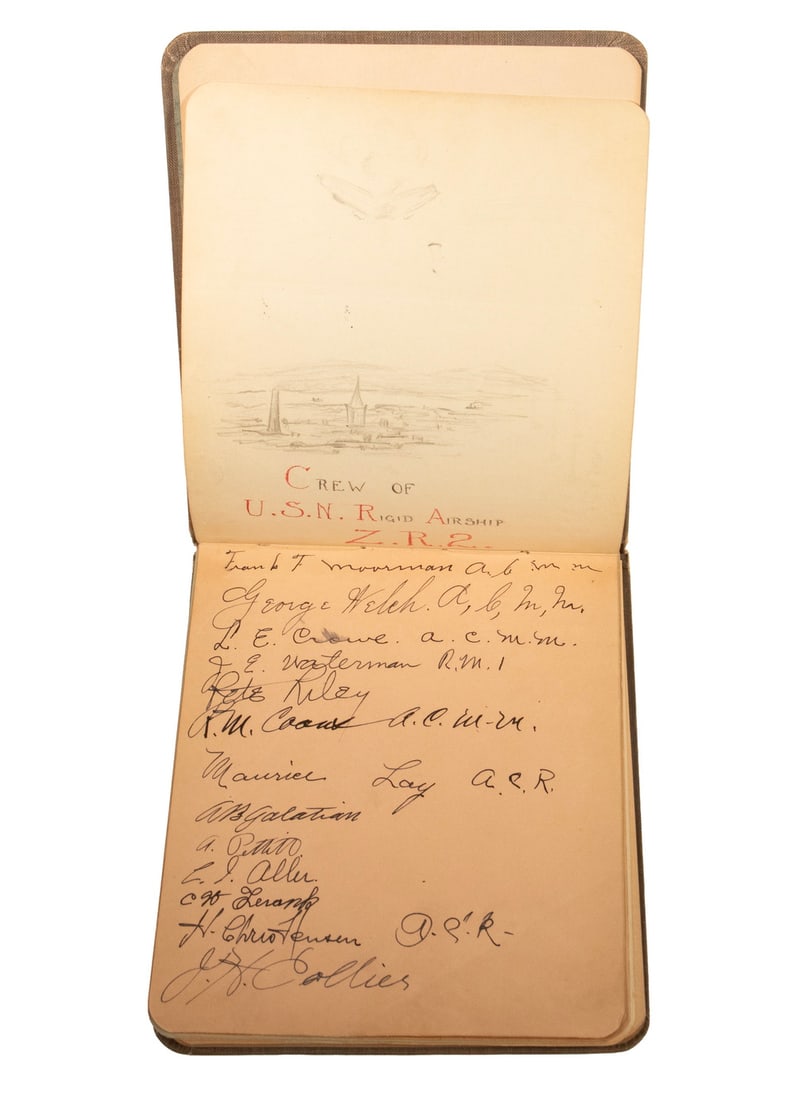 CREW OF
U.S.N. RIGID AIRSHIP
Z.R.2.
Frank F Moorman A.C.M.M.
George Welch. A,C,M,M.
L. E. Crowe. A.C.M.M.
J. E. Waterman R.M.1
Pete Riley
R.M. Coons A.C.M.M.
Maurice Lay A.C.R.
A B Galatian
A. Pettitt
E. I. Allen.
C W
H. Christensen A.C.R-
J. H. Collier